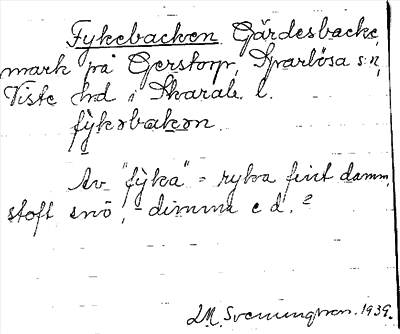 Fykebacken Gärdesbacke,
mark på Gerstorp, Sparlösa s:n,
Viste hd i Skarab. l.
fy̆kəbakən.
Av "fȳka" - ryka fint damm,
stoft snö, - dimma e d. ?
M. Svenungsson. 1939.